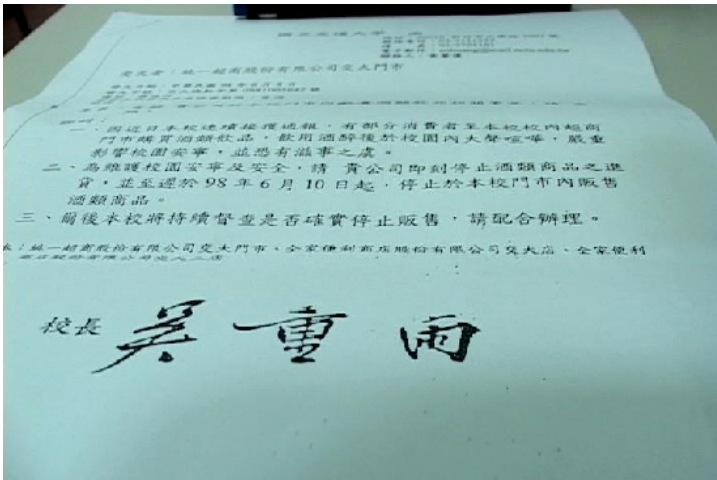 國立交通大學 函
受文者：統一超商股份有限公司交大門市
說明：
一、因近日本校連續接獲通報，有部分消費者至本校校內超商
門市購買酒類飲品，飲用酒醉後於校園內大聲喧嘩，嚴重
影響校園安寧，並恐有滋事之虞。
二、為維護校園安寧及安全，請 貴公司即刻停止酒類商品之進
貨，並至遲於98年6月10日起，停止於本校門市內販售
酒類商品。
三、爾後本校將持續督查是否確實停止販售，請配合辦理。
本：統一超商股份有限公司交大門市、全家便利商店股份有限公司交大店、全家便利
商店股份有限公司交大二店
校長 吳重雨